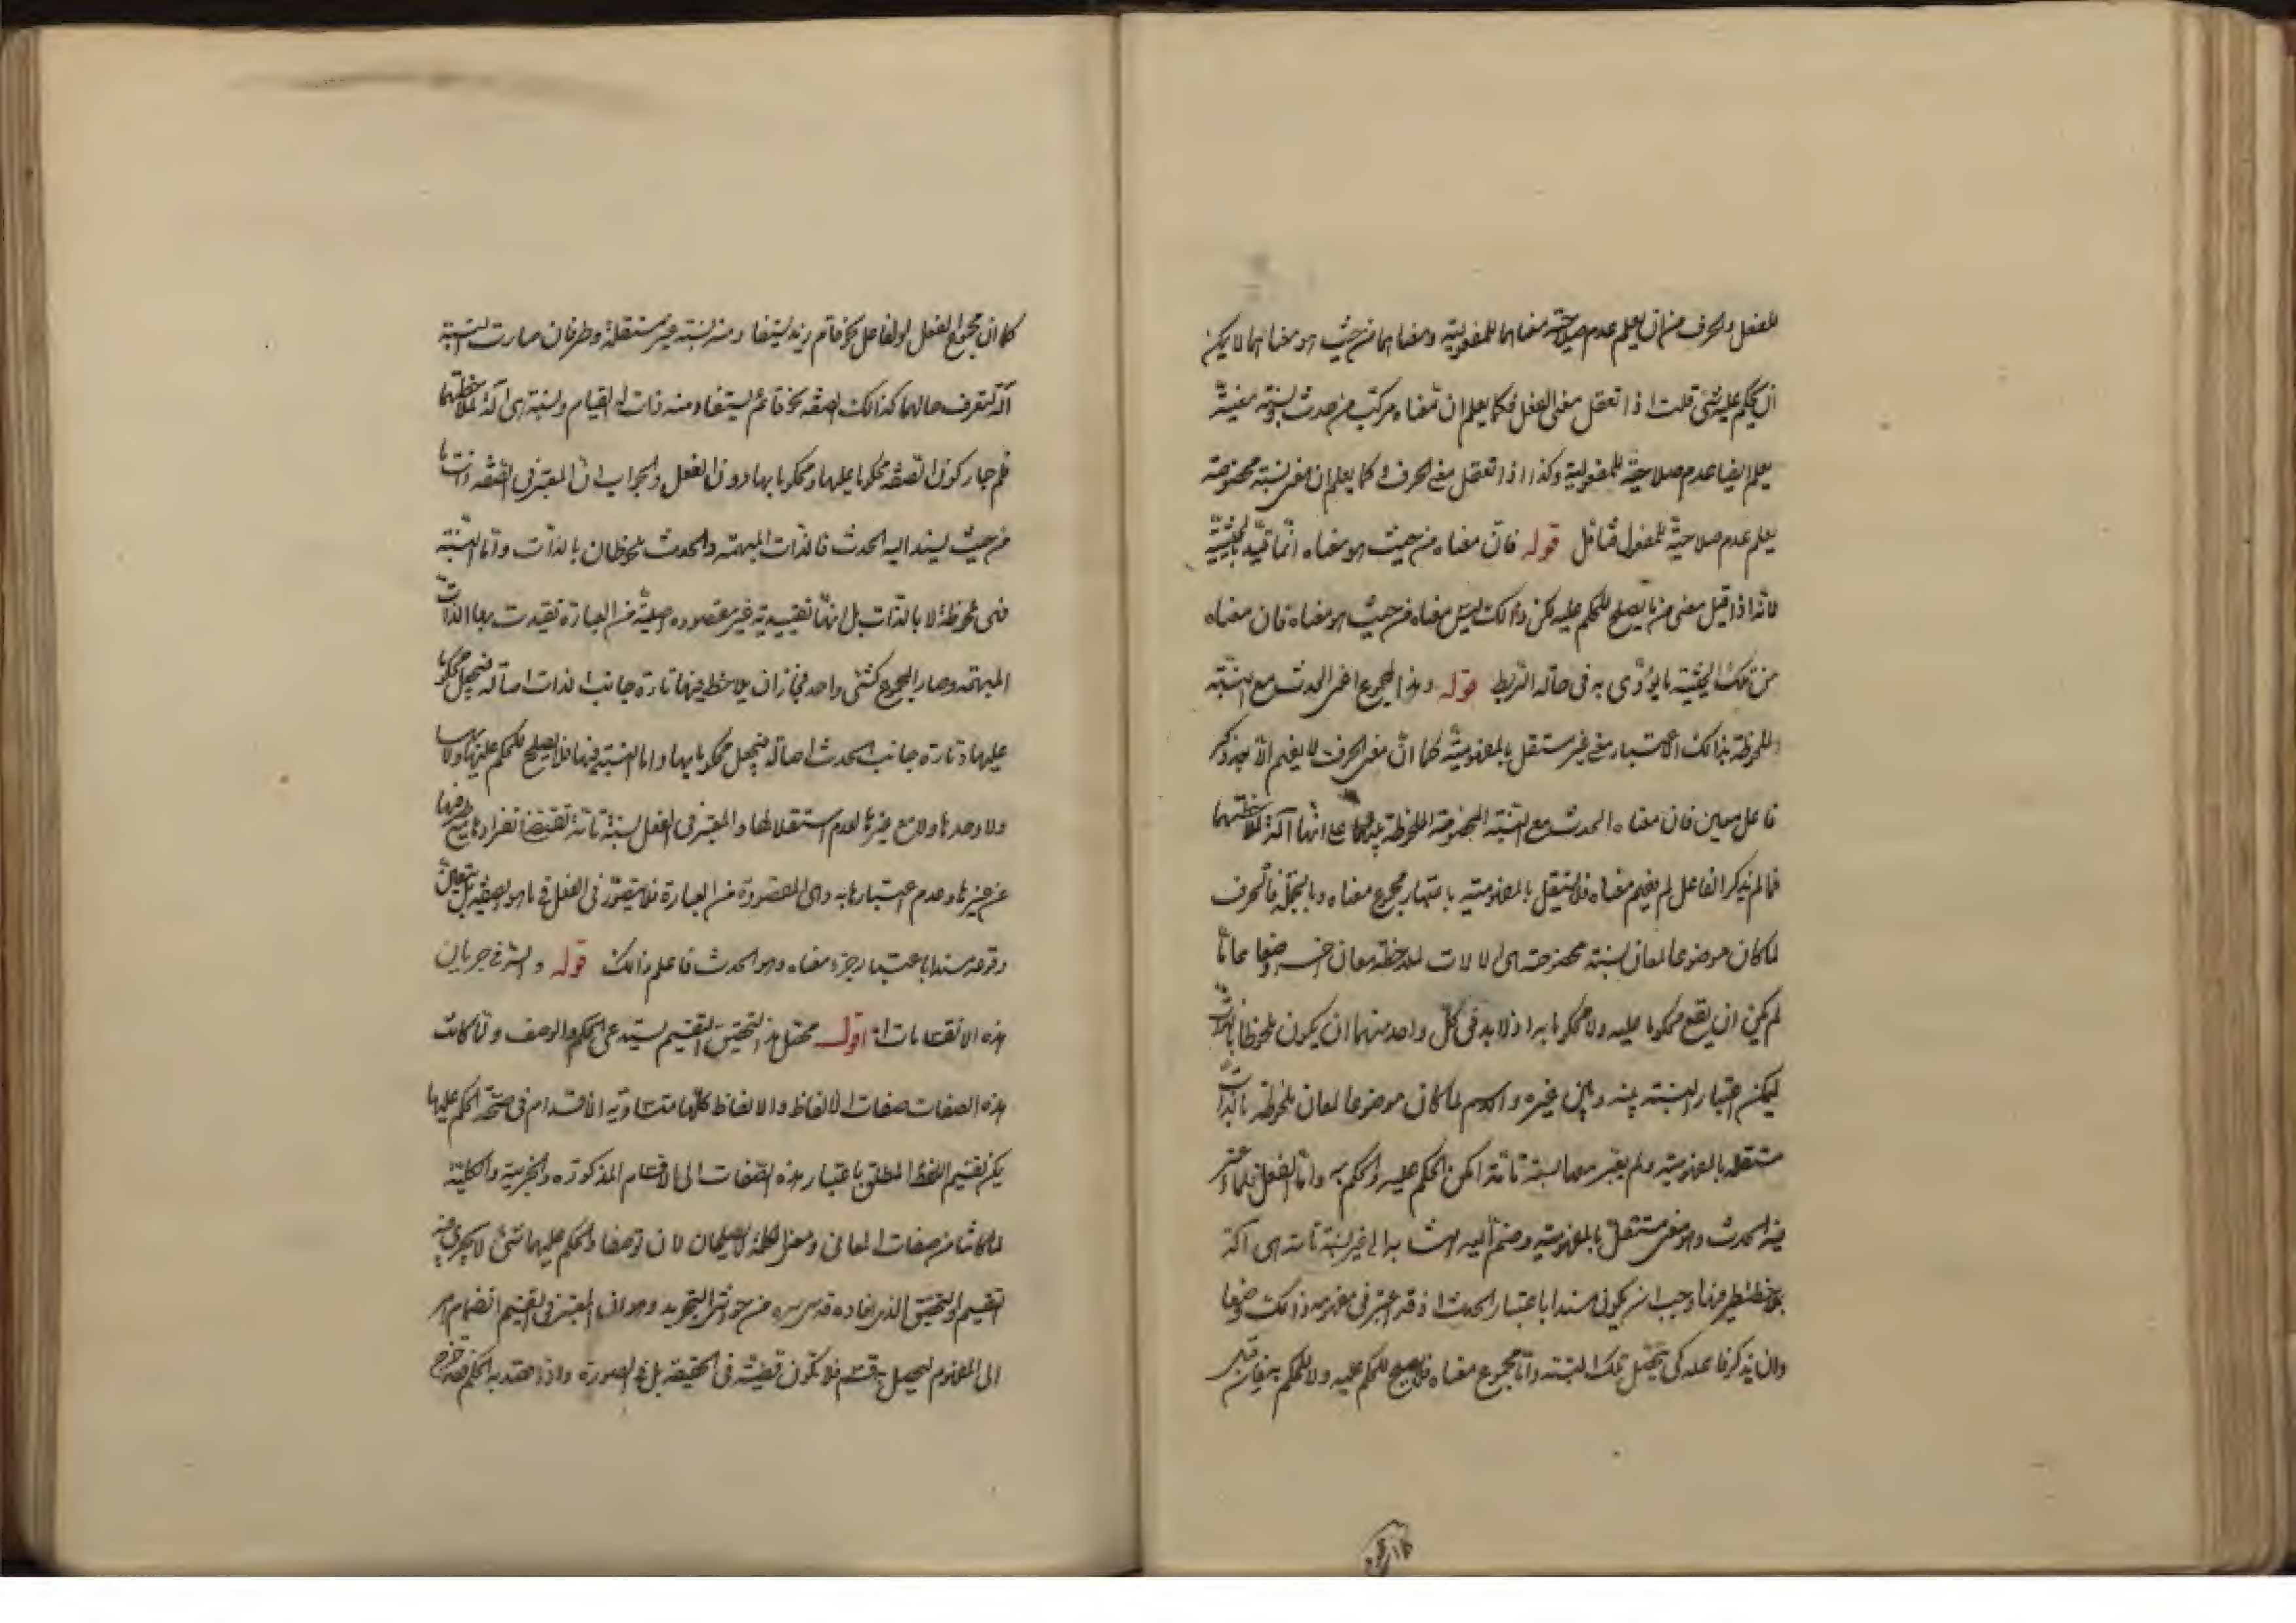 للفعل والحرف من ان يعلم عدم صلاحية معناهما للمفعولية ومعناهما من حيث هو معناهما لا يمكن
ان يحكم عليه بشئ قلت اذا تعقل معنى الفعل فكما يعلم ان معناه مركب من حدث ونسبة معينة
يعلم ايضا عدم صلاحية للمفعولية وكذا اذا تعقل معنى الحرف فكما يعلم ان معنى نسبة مخصوصة
يعلم عدم صلاحية للمفعول فتأمل قوله فان معناه من حيث هو معناه انما قيد بالحيثية
لانه اذا قيل معنى من ما يصلح للحكم عليه لكن ذلك ليس معناه من حيث هو معناه فان معناه
من تلك الحيثية ما يؤدى به فى حالة الربط قوله وهذا المجموع اعنى الحدث مع النسبة
الملحوظة بذلك الاعتبار معنى غير مستقل بالمفهومية كما ان معنى الحرف لا يفهم الا بعد ذكر
فاعل معين فان معناه الحدث مع النسبة المخصوصة الملحوظة بينهما على انها آلة لملاحظتهما
فما لم يذكر الفاعل لم يفهم معناه فلا يستقل بالمفهومية باعتبار مجموع معناه وبالجملة فالحرف
لما كان موضوعا لمعان نسبة مخصوصة هى آلالات لملاحظة معان اخر وضعا عاما
لم يمكن ان يقع محكوما عليه ولا محكوما به اذ لا بد فى كل واحد منهما ان يكون ملحوظا بالذات
ليمكن اعتبار النسبة بينه وبين غيره والاسم لما كان موضوعا لمعان ملحوظة بالذات
مستقلة بالمفهومية ولم يعتبر معها نسبة تامة امكن الحكم عليه والحكم به واما الفعل فلما اعتبر
فيه الحدث وهو معنى مستقل بالمفهومية وضم اليه انتسابه الى غير نسبة تامة هى آلة
ملاحظة طرفيها وجب ان يكون مسندا باعتبار الحدث اذ قد اعتبر فى مفهومه ذلك وضعا
وان يذكر فاعله كى يتحصل تلك النسبة واما مجموع معناه فلا يصلح للحكم عليه ولا للحكم به فان قيل
كما ان مجموع الفعل والفاعل نحو قام زيد يستفاد منه نسبة غير مستقلة وطرفان صارت النسبة
آلة لتعرف حالهما كذلك الصفة نحو قائم يستفاد منه ذات والقيام ونسبة هى آلة لملاحظتهما
فلم جاز كون الصفة محكوما عليها ومحكوما بها دون الفعل والجواب ان المعتبر فى الصفة ذات ما
من حيث يسند اليه الحدث فالذات المبهمة والحدث ملحوظان بالذات واما النسبة
فهى ملحوظة لا بالذات بل انها تقييدية غير مقصودة اصلية من العبارة تقيدت بها الذات
المبهمة وصار المجموع كشئ واحد فجاز ان يلاحظ فيها تارة جانب الذات اصالة فيجعل محكوما
عليها وتارة جانب الحدث اصالة فيجعل محكوما بها واما النسبة فيها فلا يصلح للحكم عليها ولا بها
ولا وحدها ولا مع غيرها لعدم استقلالها والمعتبر فى الفعل نسبة تامة تقتضى انفرادها مع طرفيها
عن غيرها وعدم اعتبارها به وهى المقصودة من العبارة فلا يتصور فى الفعل ما هو فى الصفة بل يتعين
وقوعه مسندا باعتبار جزء معناه وهو الحدث فاعلم ذلك قوله والسر فى جريان
هذه الانقسامات اه اقول محصل هذا التحقيق التقسيم يستدعى الحكم والوصف ولما كانت
هذه الصفات صفات الالفاظ والالفاظ كلها متساوية الاقدام فى صحة الحكم عليها
يمكن تقسيم اللفظ المطلق باعتبار هذه الصفات الى الاقسام المذكورة والجزئية والكلية
لما كانتا من صفات المعانى ومعنى الكلمة لا يصلحان لان توصفا والحكم عليهما بشئ لا يجرى فيه
التقسيم والتحقيق الذى افاده قدس سره من حواشى التجريد وهو ان المعتبر فى التقسيم انضمام امر
الى المفهوم ليحصل به قسم فلا تكون قضية فى الحقيقة بل فى الصورة واذا قصد به الحكم فقد خرج